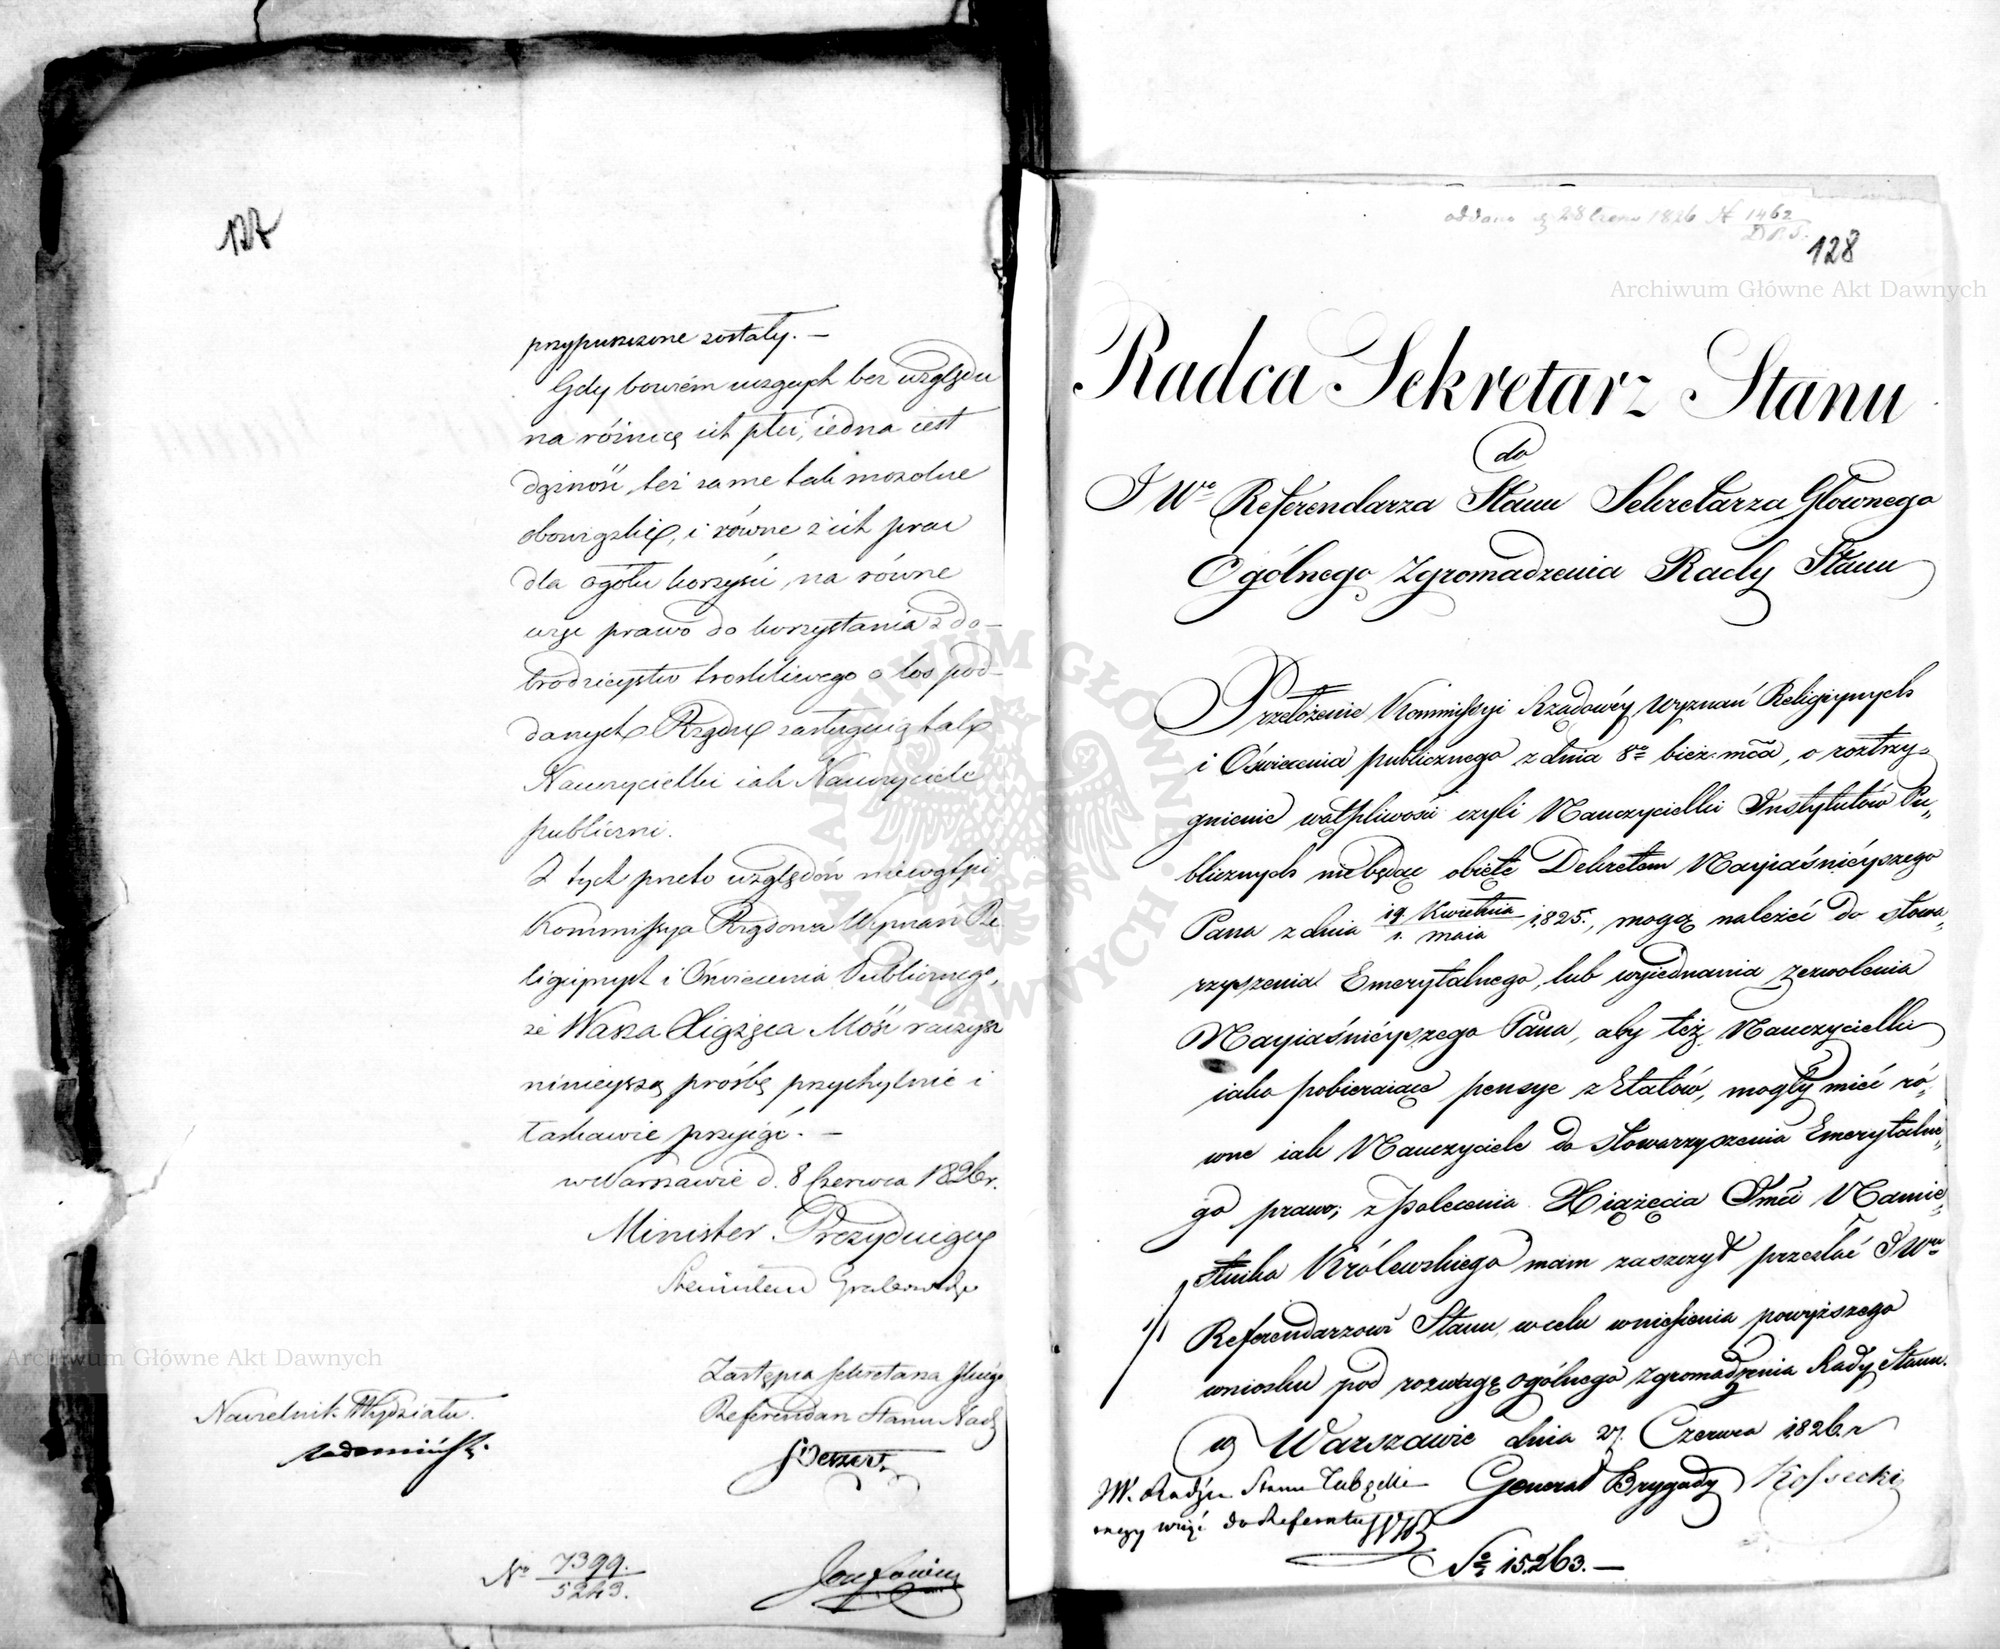 127
przypuszczone zostały. —
Gdy bowiem wszystkich bez względu
na różnicę ich płci, iedna iest
dążność, też same tak mozolne
obowiązki, i równe z ich prac
dla ogółu korzyści, na równe
więc prawo do korzystania z do-
brodzieystw troskliwego o los pod-
danych Rządu zasługuią tak
Nauczycielki iak Nauczyciele
publiczni.
Z tych przeto względów niewątpi
Kommissya Rządowa Wyznań Re
ligiynych i Oświecenia Publicznego,
że Wasza Xiążęca Mość raczysz
ninieyszą prośbę przychylnie i
łaskawie przyiąć. —
w Warszawie d. 8 Czerwca 1826 r.
Minister Prezyduiący
Stanisław Grabowski
Zastępca Sekretarza Głngo
Referendarz Stanu Nadz
Naczelnik Wydziału.
No 7399.
5243.
oddano d 28 Czerw 1826 N 1462
D.R.S.
128
Archiwum Główne Akt Dawnych
Radca Sekretarz Stanu
do
JWo Referendarza Stanu Sekretarza Głownego
Ogólnego Zgromadzenia Rady Stanu
Przełożenie Kommissyi Rządowéy Wyznań Religiynych
i Oświecenia publicznego z dnia 8o bież: mca, o roztrzy-
gnienie wątpliwości czyli Nauczycielki Instytutów Pu-
blicznych niebędąc obięte Dekretem Nayiaśnieyszego
Pana z dnia 19 Kwietnia / 1. maia 1825., mogą należeć do stowa-
rzyszenia Emerytalnego, lub wyiednania zezwolenia
Nayiaśnieyszego Pana, aby też Nauczycielki
iako pobieraiące pensye z Etatów, mogły mieć ró-
wne iak Nauczyciele do stowarzyszenia Emerytalne-
go prawo; z polecenia Xiążęcia Jmci Namie-
stnika Królewskiego mam zaszczyt przesłać JWu
Referendarzowi Stanu, w celu wniesienia powyższego
wniosku pod rozwagę ogólnego Zgromadzenia Rady Stanu.
w Warszawie dnia 27. Czerwca 1826. r
Generał Brygady Kossecki
JW. Radzca Stanu Lubęcki
raczy wziąć do Referatu
No 15263. —
Archiwum Główne Akt Dawnych
ARCHIWUM GŁÓWNE AKT DAWNYCH